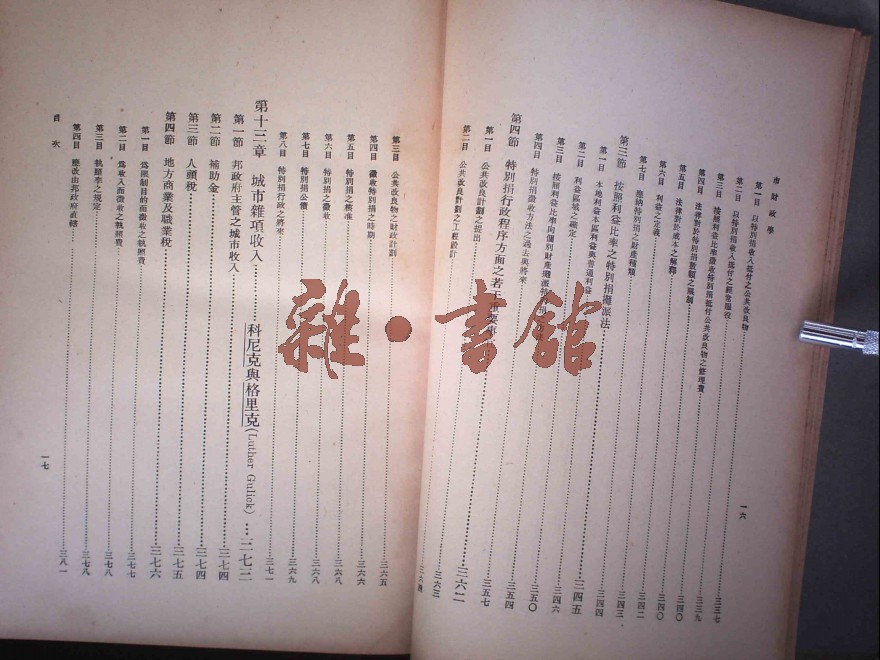 市財政學
一六
第一目 以特別捐收入抵付之公共改良物
第二目 以特別捐收入抵付之經常服役 三三七
第三目 按照利益比率徵收特別捐抵付公共改良物之修理費 三三九
第四目 法律對於特別捐數額之限制 三四〇
第五目 法律對於成本之解釋 三四〇
第六目 利益之定義 三四二
第七目 應納特別捐之財產種類 三四三
第三節 按照利益比率之特別捐攤派法 三四四
第一目 本地利益本區利益與普通利益 三四五
第二目 利益區域之確定 三四六
第三目 按照利益比率向個別財產攤派特別捐
第四目 特別捐徵收方法之過去與將來 三五〇
第四節 特別捐行政程序方面之若干重要事 三五四
第一目 公共改良計劃之提出 三五七
第二目 公共改良計劃之工程設計 三六二
雜·書館
第三目 公共改良物之財政計劃 三六五
第四目 徵收特別捐之時期 三六六
第五目 特別捐之核准 三六八
第六目 特別捐之徵收 三六八
第七目 特別捐公債 三六九
第八目 特別捐行政之將來 三七一
第十三章 城市雜項收入 科尼克與格里克(Luther Gulick) 三七三
第一節 邦政府主管之城市收入
第二節 補助金 三七四
第三節 人頭稅 三七五
第四節 地方商業及職業稅 三七六
第一目 為限制目的而徵收之執照費 三七七
第二目 為收入而徵收之執照費 三七八
第三目 執照率之規定 三七八
第四目 應改由邦政府直轄 三八一
目次
一七